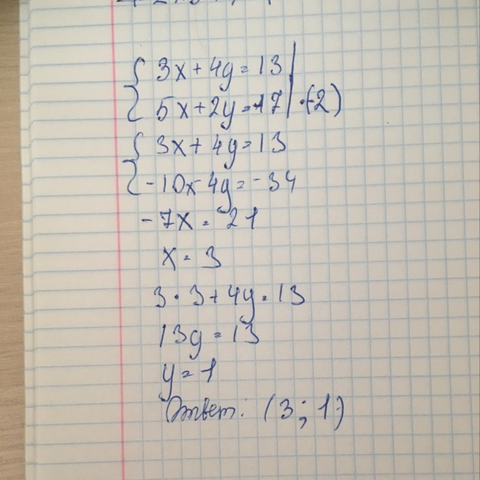 3x+4y=13
5x+2y=17 |·(-2)
3x+4y=13
-10x-4y=-34
-7x=21
x=3
3·3+4y=13
13y=13
y=1
Ответ: (3;1)